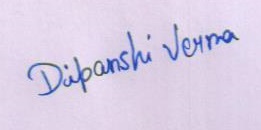 Dipanshi Verma